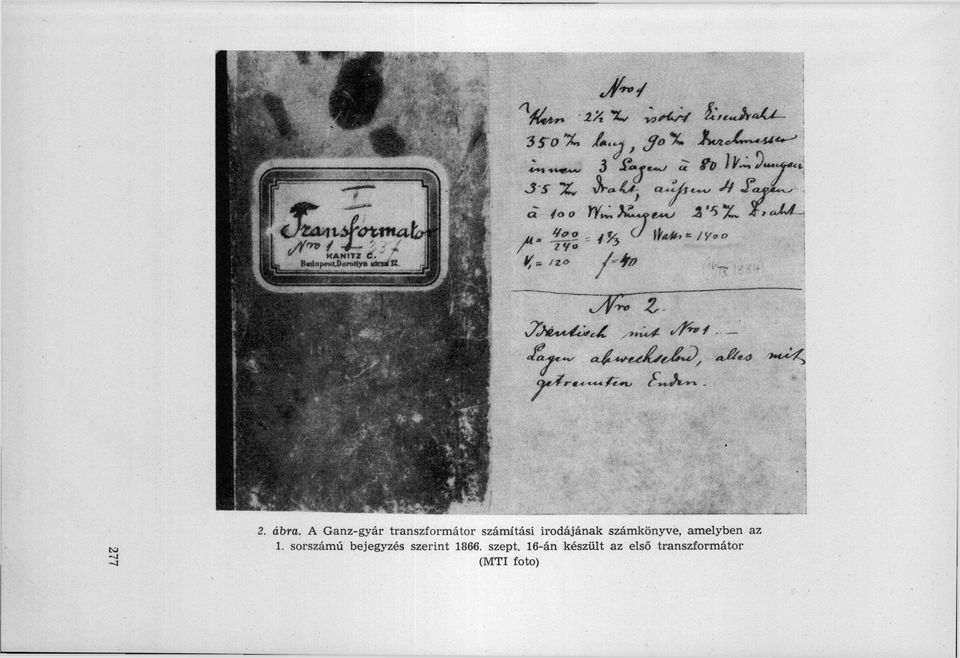 I
Transformator
Nro 1 – 337
KANITZ C.
Budapest, Dorottya utcza 12.
Nro 1
Kern 2½ m/m isolirt Eisendraht
350 m/m lang, 90 m/m Durchmesser
innen 3 Lagen à 80 Windungen
3·5 m/m Draht, außen 4 Lagen
à 100 Windungen 2·5 m/m Draht
μ = 400/240 = 1⅔ Watts = 1400
V₁ = 120 f = 40
16/IX 1884
Nro 2.
Identisch mit Nro 1. —
Lagen abwechselnd, alles mit
getrennten Enden.
2. ábra. A Ganz-gyár transzformátor számítási irodájának számkönyve, amelyben az
1. sorszámú bejegyzés szerint 1866. szept. 16-án készült az első transzformátor
(MTI foto)
277